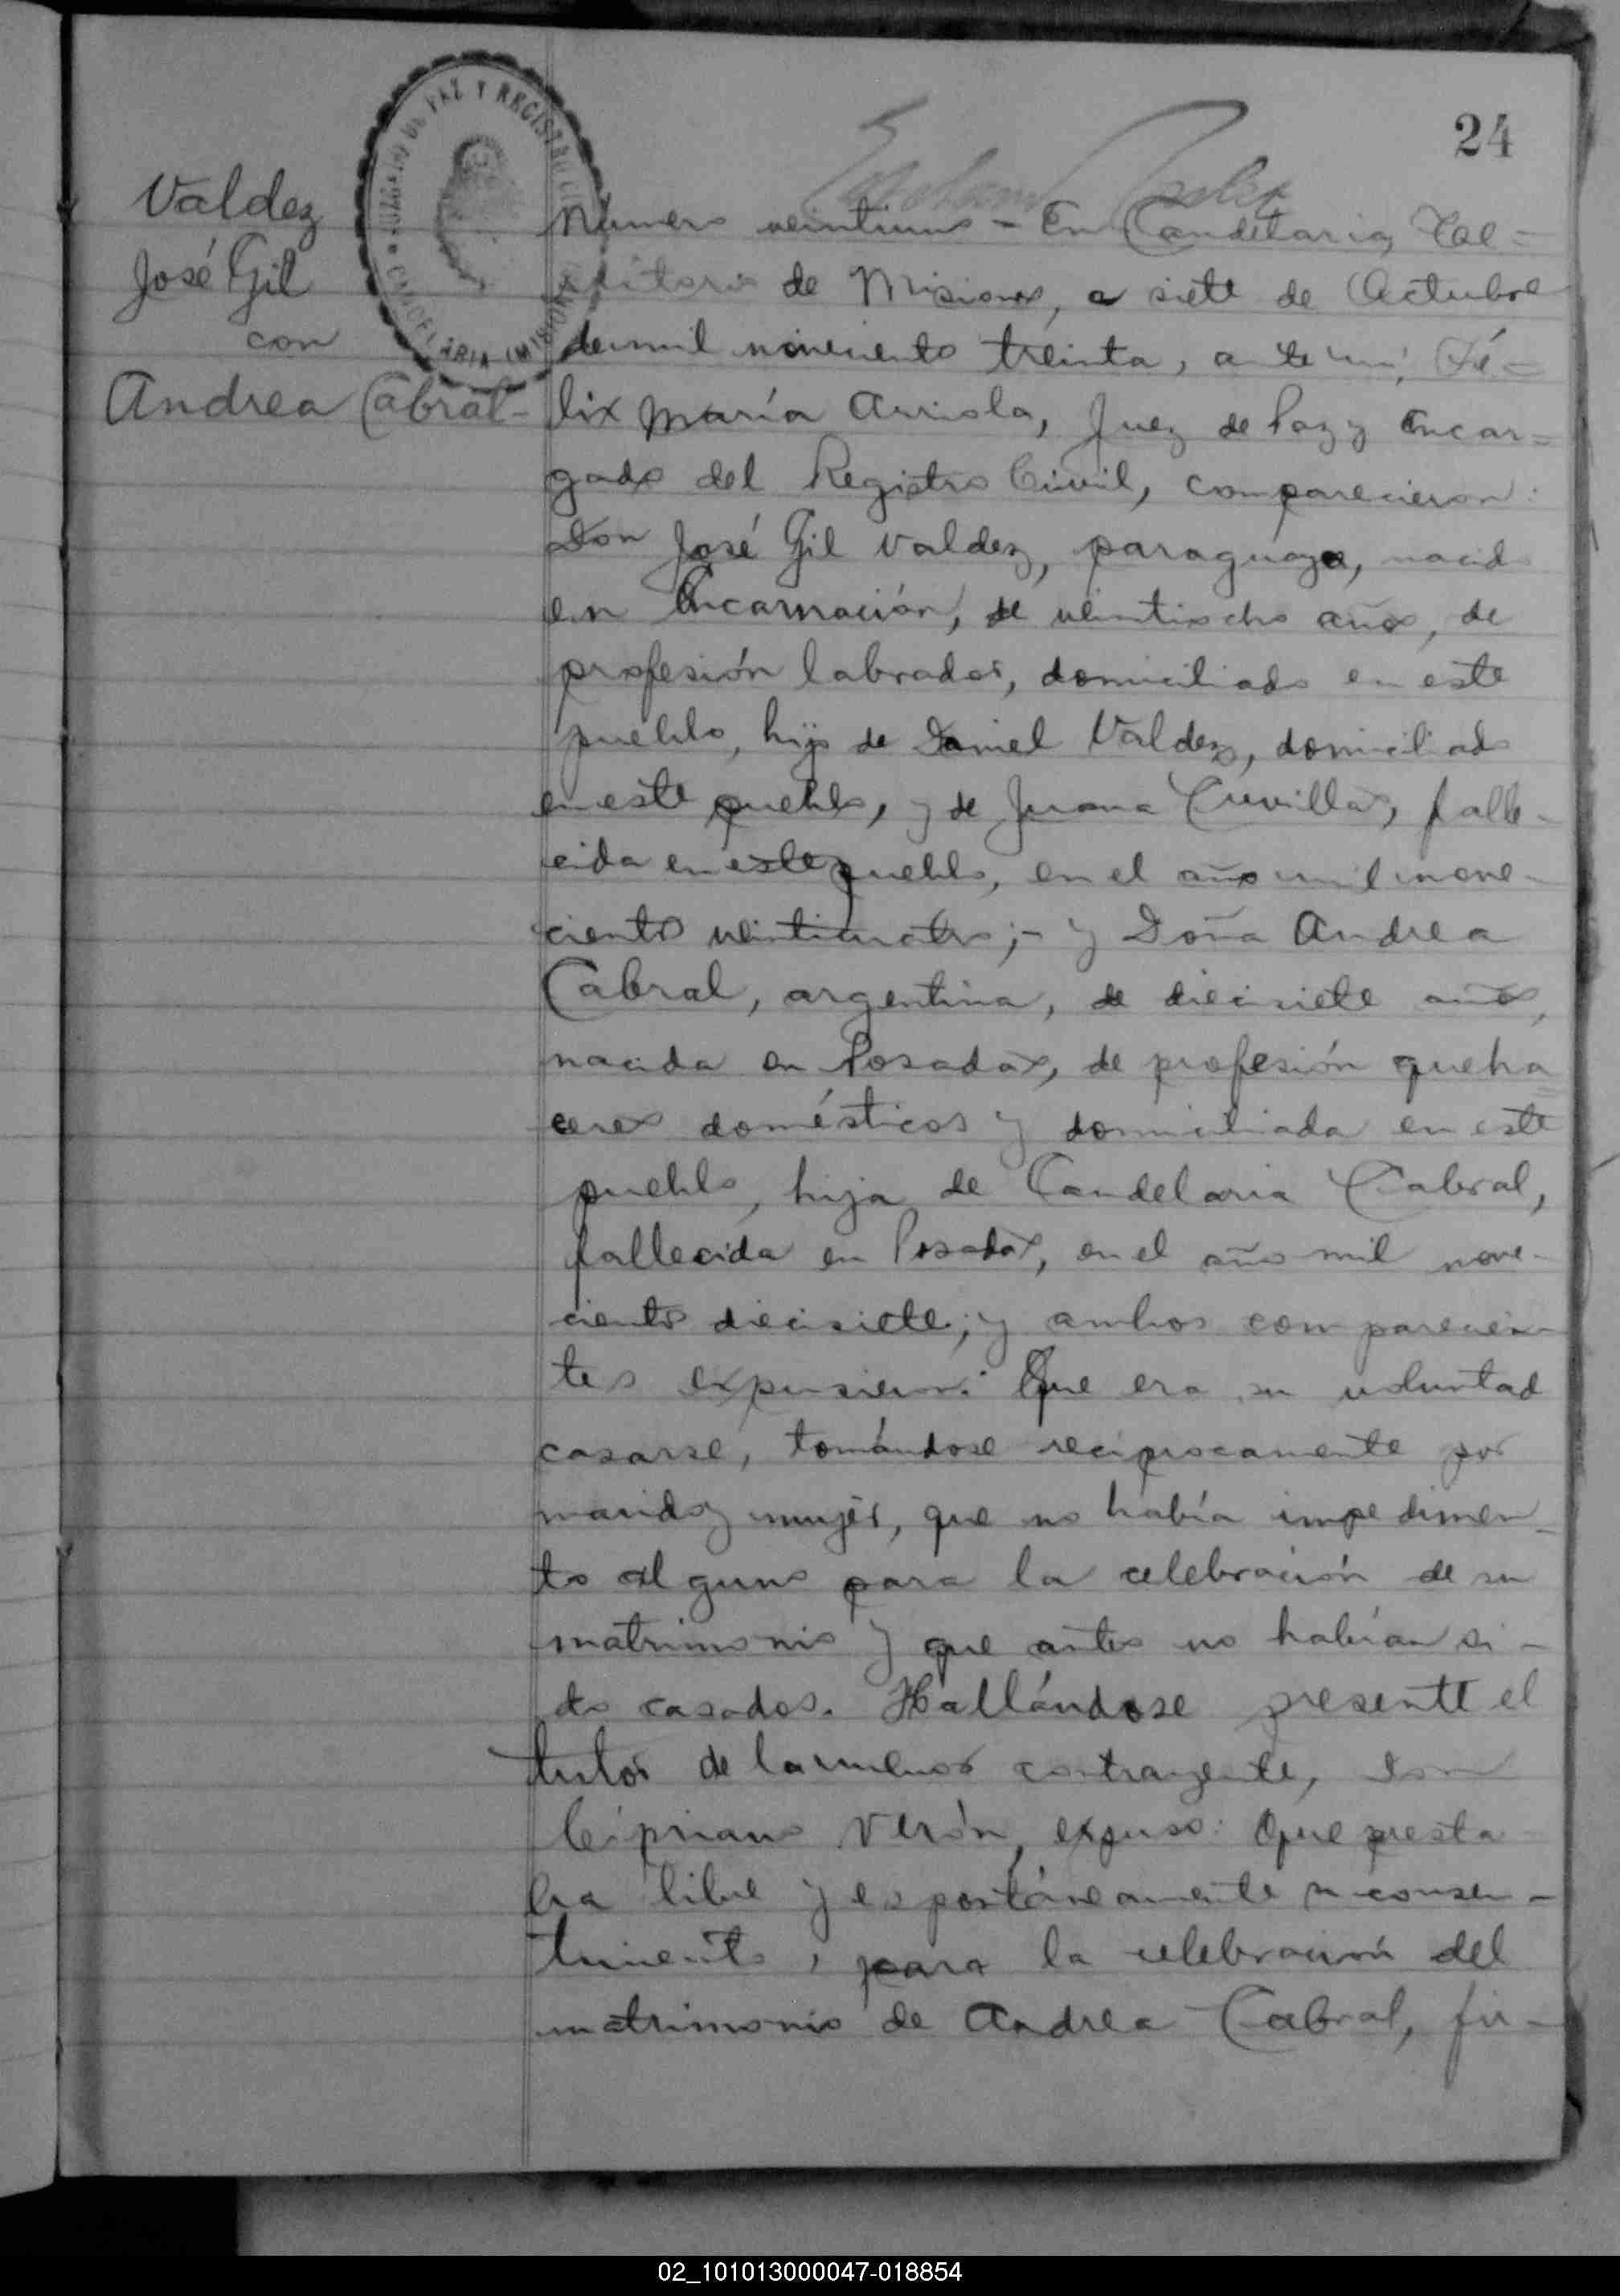 24
Valdez
José Gil
con
Andrea Cabral-
JUZGADO DE PAZ Y REGISTRO CIVIL
CANDELARIA (MISIONES)
Número veintiuno - En Candelaria, Te=
rritorio de Misiones, a siete de Octubre
de mil noveciento treinta, ante mí, Fé=
lix María Arriola, Juez de Paz y Encar=
gado del Registro Civil, comparecieron:
Don José Gil Valdez, paraguayo, nacido
en Encarnación, de veintiocho años, de
profesión labrador, domiciliado en este
pueblo, hijo de Daniel Valdez, domiciliado
en este pueblo, y de Juana Cuvilla, falle-
cida en este pueblo, en el año mil nove-
ciento veinticuatro;- y Doña Andrea
Cabral, argentina, de diecisiete años,
nacida en Posadas, de profesión queha=
ceres domésticos y domiciliada en este
pueblo, hija de Candelaria Cabral,
fallecida en Posadas, en el año mil nove-
ciento diecisiete; y ambos comparecien-
tes expusieron: Que era su voluntad
casarse, tomándose reciprocamente por
marido y mujer, que no había impedimen-
to alguno para la celebración de su
matrimonio y que antes no habían si-
do casados. Hallándose presente el
tutor de la menor contrayente, don
Cipriano Verón, expuso: Que presta-
ba libre y espontáneamente su consen-
timiento, para la celebración del
matrimonio de Andrea Cabral, fir-
02_101013000047-018854